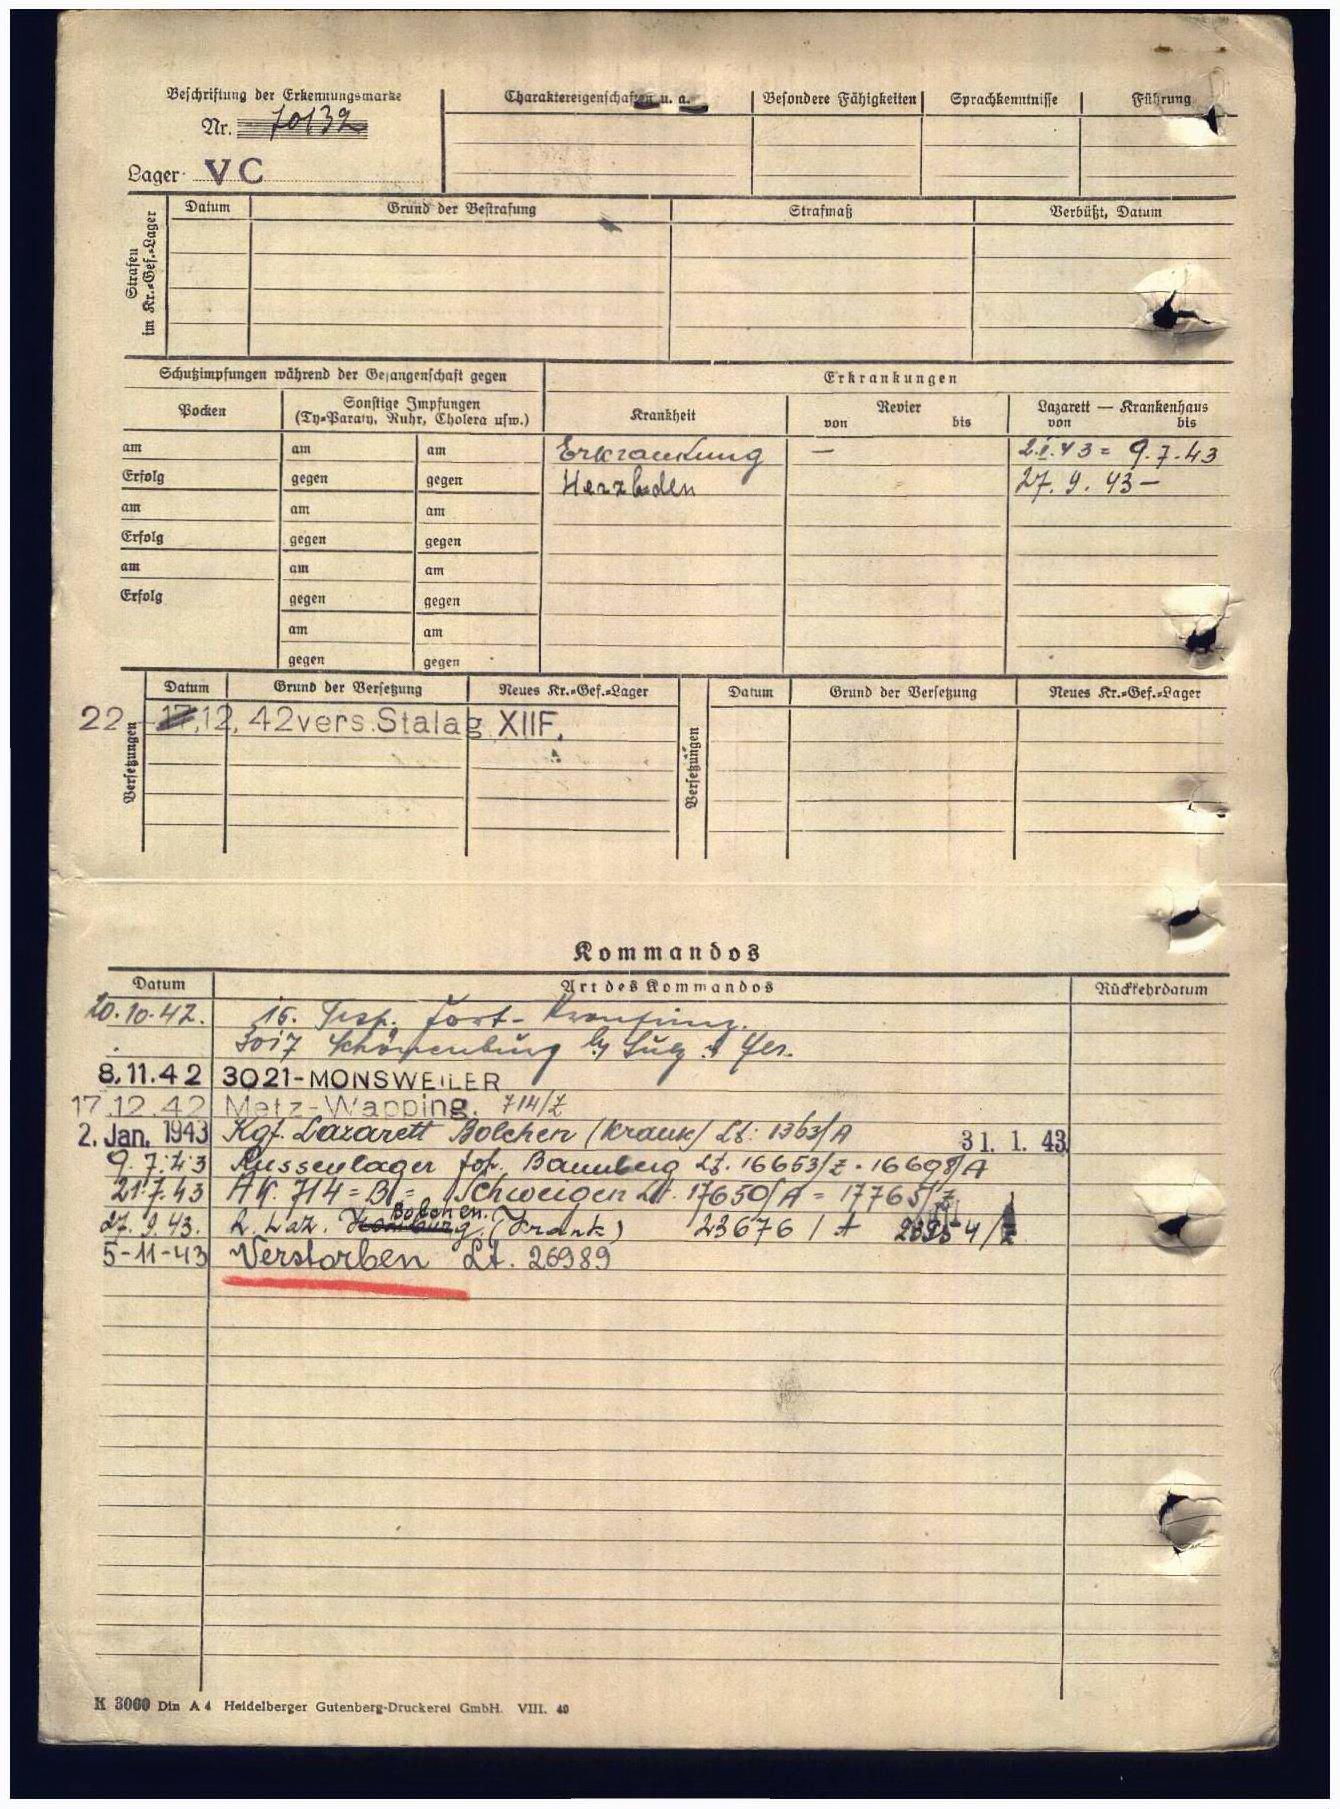 Beschriftung der Erkennungsmarke
Nr. 70132
Lager: V C
Charaktereigenschaften u. a. Besondere Fähigkeiten Sprachkenntnisse Führung
Strafen im Kr.=Gef.=Lager
Datum Grund der Bestrafung Strafmaß Verbüßt, Datum
Schutzimpfungen während der Gefangenschaft gegen Erkrankungen
Pocken Sonstige Impfungen
(Ty=Paraty, Ruhr, Cholera usw.)
Krankheit Revier Lazarett — Krankenhaus
von bis von bis
am am am Erkrankung — 2.I.43 = 9.7.43
Erfolg gegen gegen Herzleiden 27. 9. 43 —
am am am
Erfolg gegen gegen
am am am
Erfolg gegen gegen
am am
gegen gegen
Versetzungen
Datum Grund der Versetzung Neues Kr.=Gef.=Lager Datum Grund der Versetzung Neues Kr.=Gef.=Lager
Versetzungen
22. 17.12.42 vers. Stalag XIIF.
Kommandos
Datum Art des Kommandos Rückkehrdatum
20.10.42. 16.
3017 Schönenburg
8.11.42 3021-MONSWEILER
17.12.42 Metz-Wapping. 714/Z
2. Jan. 1943 Kgf. Lazarett Bolchen (krank) Lt: 1363/A 31.1.43
9.7.43 Russenlager Bannberg Lt. 16653/Z - 16698/A
21.7.43 AK. 714=B1= Schweigen Lt. 17650/A = 17765/Z
27.9.43. Laz. Homburg Bolchen. (Krank) 23676/A
5-11-43 Verstorben Lt. 26989
K 3060 Din A 4 Heidelberger Gutenberg-Druckerei GmbH. VIII. 40